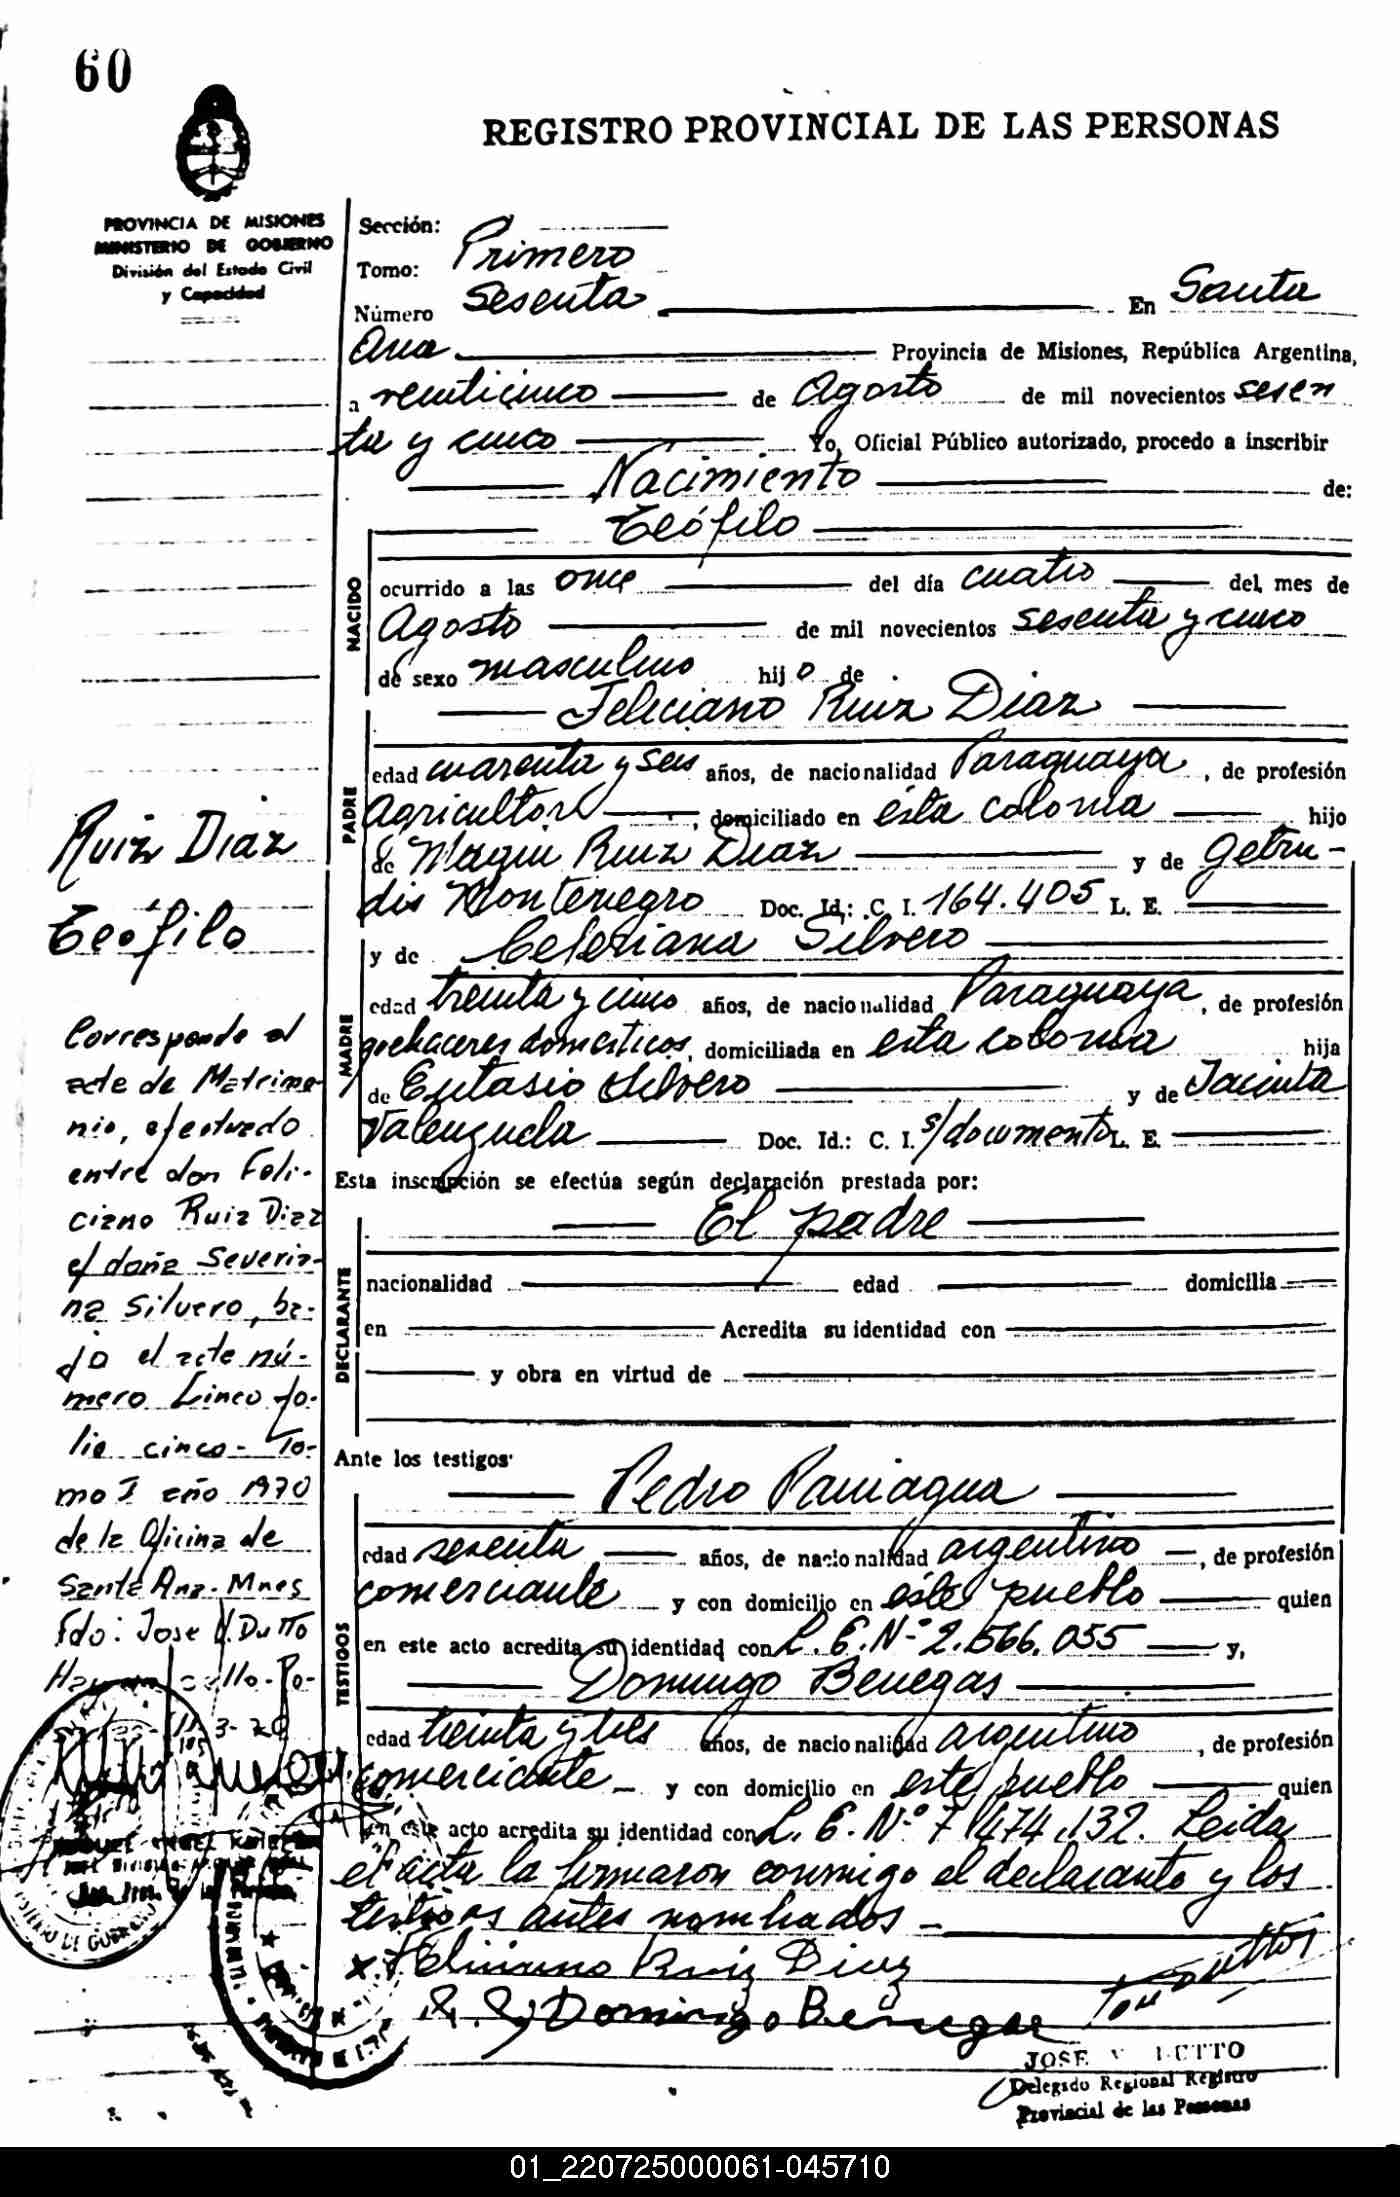 60
REGISTRO PROVINCIAL DE LAS PERSONAS
PROVINCIA DE MISIONES
MINISTERIO DE GOBIERNO
División del Estado Civil
y Capacidad
Sección:
Tomo: Primero
Número Sesenta En Santa
Ana Provincia de Misiones, República Argentina,
a veinticinco de Agosto de mil novecientos sesen
ta y cinco Yo, Oficial Público autorizado, procedo a inscribir
Nacimiento de:
Teófilo
NACIDO
ocurrido a las once del día cuatro del mes de
Agosto de mil novecientos sesenta y cinco
de sexo masculino hijo de
Feliciano Ruiz Diaz
PADRE
edad cuarenta y seis años, de nacionalidad Paraguaya, de profesión
Agricultor, domiciliado en ésta colonia hijo
de Ruiz Diaz y de Getru-
dis Montenegro Doc. Id.: C. I. 164.405 L. E.
y de Silvero
MADRE
edad treinta y cinco años, de nacionalidad Paraguaya, de profesión
quehaceres domésticos, domiciliada en esta colonia hija
de Eutasio Silvero y de Jacinta
Valenzuela Doc. Id.: C. I. s/documento L. E.
Esta inscripción se efectúa según declaración prestada por:
El padre
DECLARANTE
nacionalidad edad domicilia
en Acredita su identidad con
y obra en virtud de
Ante los testigos
Pedro Paniagua
TESTIGOS
edad sesenta años, de nacionalidad argentino, de profesión
comerciante y con domicilio en éste pueblo quien
en este acto acredita su identidad con L. E. Nº 2.566.055 y,
Domingo Benegas
edad treinta y tres años, de nacionalidad argentino, de profesión
comerciante y con domicilio en este pueblo quien
en este acto acredita su identidad con L. E. Nº 7.474.132. Leida
el acta la firmaron conmigo el declarante y los
testigos antes nombrados
x Feliciano Ruiz Diaz
Domingo Benegas
JOSE DUTTO
Delegado Regional Registro
Provincial de las Personas
Ruiz Diaz
Teófilo
Corresponde al
acta de Matrimo
nio, efectuado
entre don Feli-
ciano Ruiz Diaz
y doña Severia-
na Silvero, ba-
jo el acta nú-
mero Cinco fo-
lio cinco- To-
mo I año 1970
de la Oficina de
Santa Ana- Mnes
Fdo: Jose V. Dutto
01_220725000061-045710